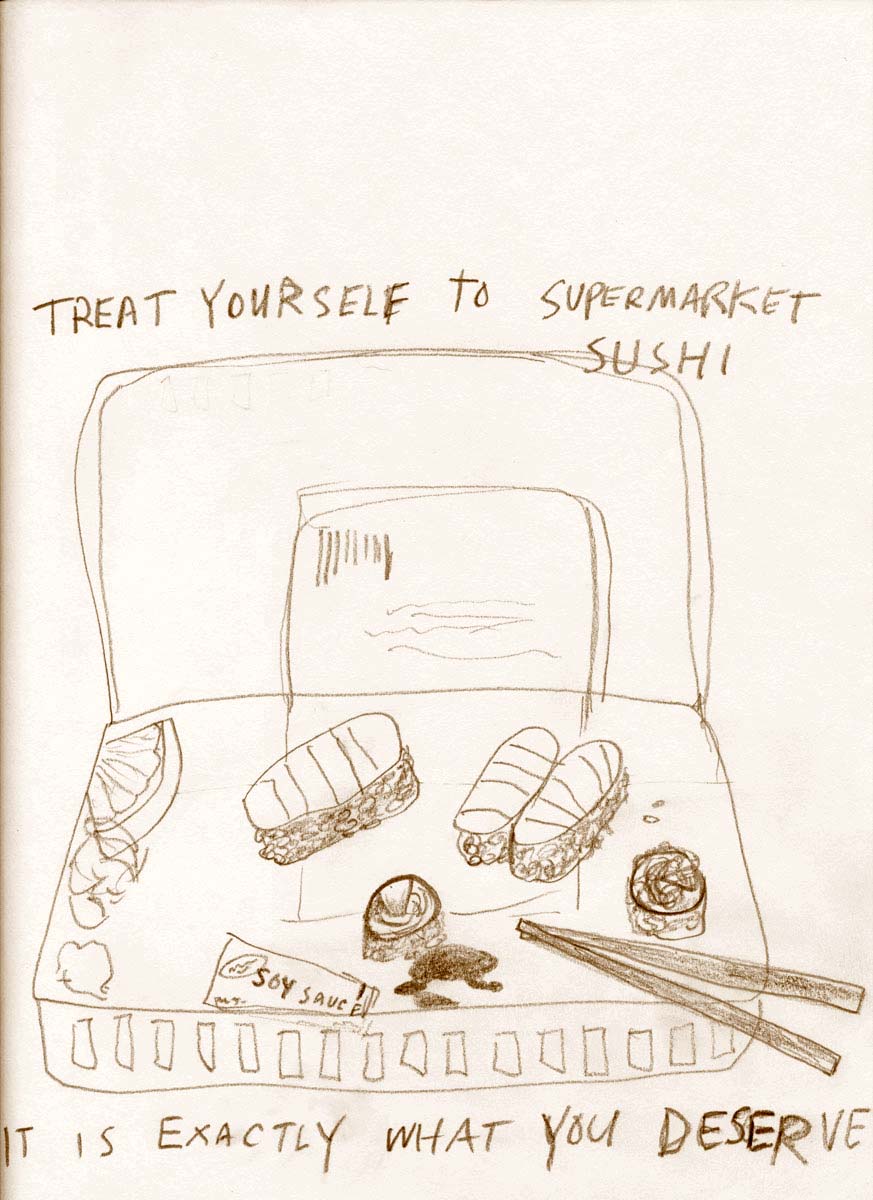 TREAT YOURSELF TO SUPERMARKET
SUSHI
SOY SAUCE
IT IS EXACTLY WHAT YOU DESERVE